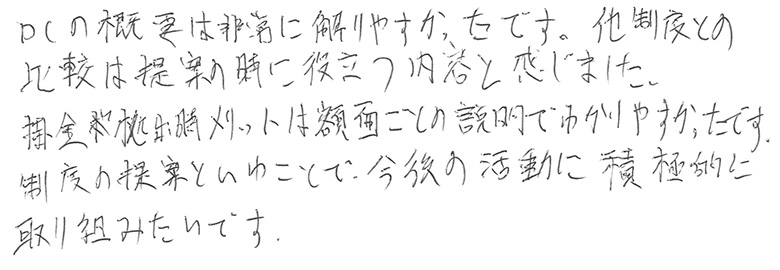 DCの概要は非常に解りやすかったです。他制度との
比較は提案の時に役立つ内容と感じました。
掛金や拠出時メリットは額面ごとの説明でわかりやすかったです。
制度の提案といゆことで、今後の活動に積極的に
取り組みたいです。